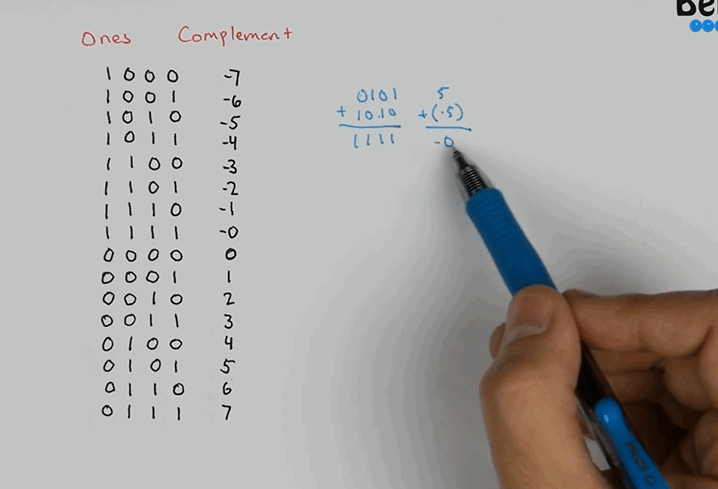 Be
Ones Complement
1 0 0 0 -7
1 0 0 1 -6
1 0 1 0 -5
1 0 1 1 -4
1 1 0 0 -3
1 1 0 1 -2
1 1 1 0 -1
1 1 1 1 -0
0 0 0 0 0
0 0 0 1 1
0 0 1 0 2
0 0 1 1 3
0 1 0 0 4
0 1 0 1 5
0 1 1 0 6
0 1 1 1 7
0101 5
+ 1010 +(-5)
1111 -0